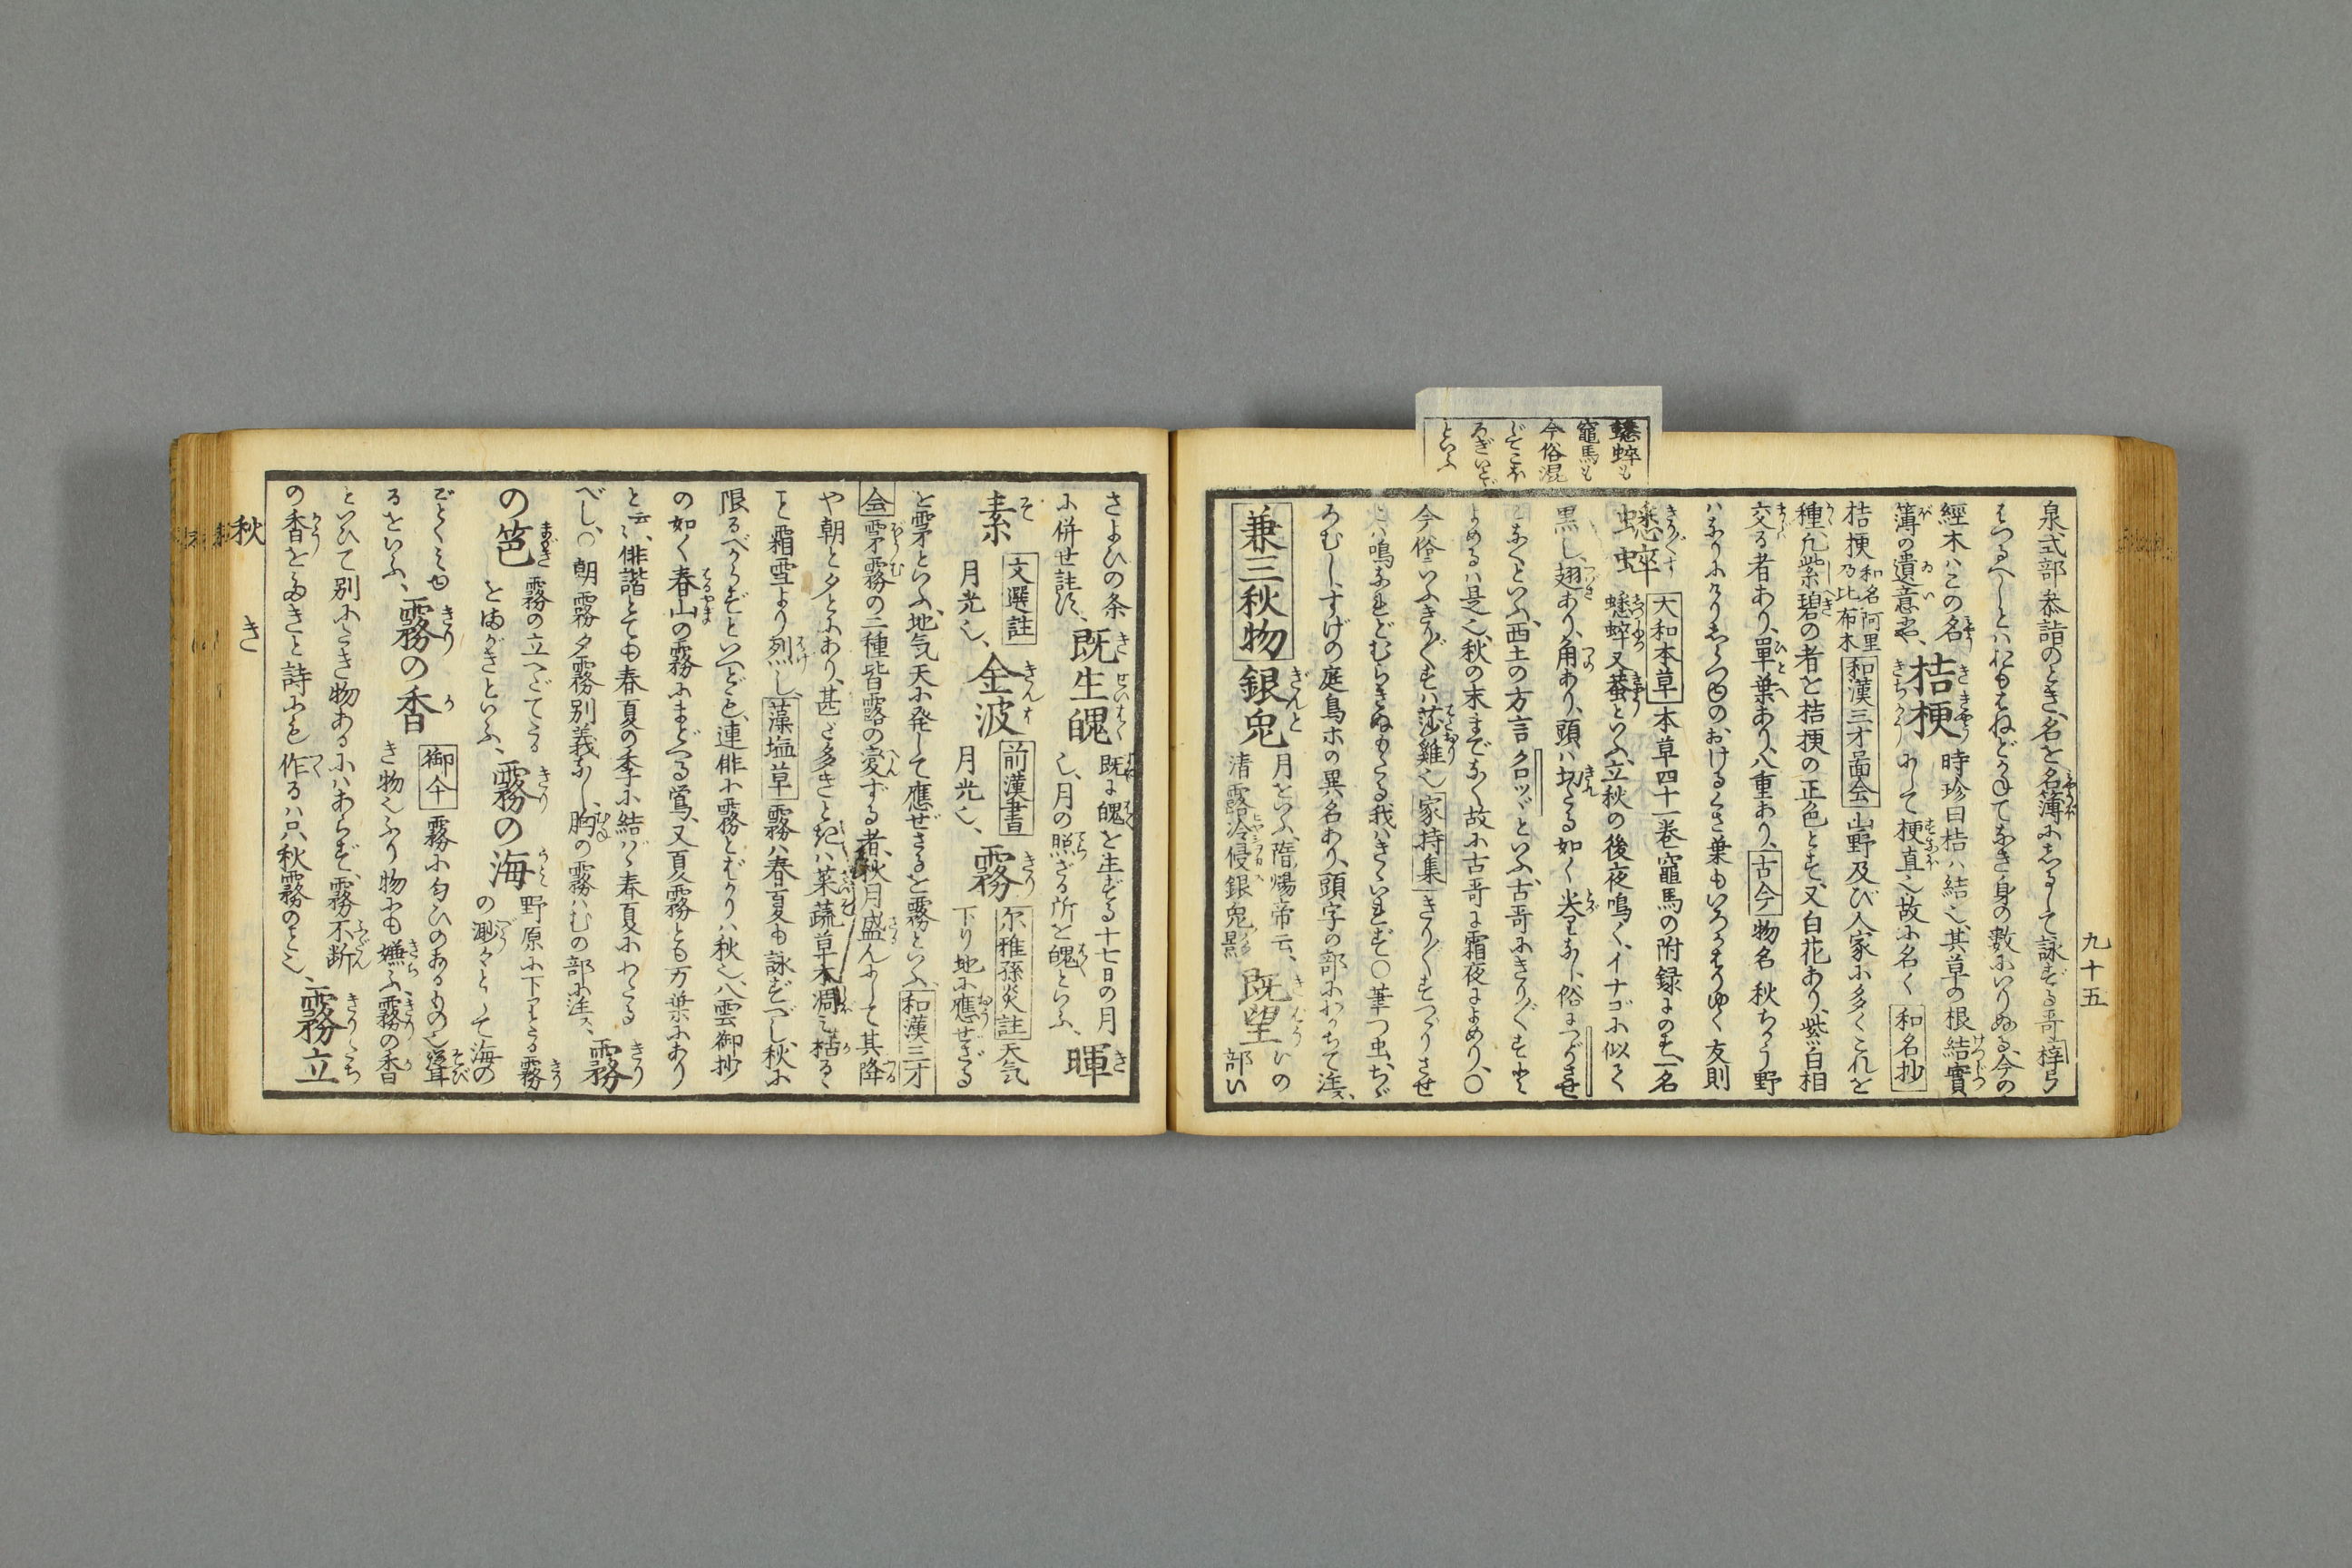 蟋蟀も
竈馬も
今俗混
じてこほ
ろぎいとど
といふ
九十五
泉式部参詣のとき、名を名簿にしるして詠ずる哥 梓弓
はつるべしとはおもはねどかねてなき身の数にいりぬる、今の
經木ハこの名
簿の遺意や、 桔梗 時珍曰桔ハ結也、其草の根結實
にして梗直也故に名く 和名抄
桔梗 和名阿里乃比布木 和漢三才啚会 山野及び人家に多くこれを
種、凡紫碧の者を桔梗の正色とす、又白花あり、紫白相
交る者あり、單葉あり、八重あり、 古今 物名 秋ちかう野
ハなりにけりしらつゆの、おけるくさ葉もいろかはりゆく 友則
蟋蟀 大和本草 本草四十一巻竈馬の附録にのす、一名
蟋蟀又蛬といふ、立秋の後夜鳴く、イナゴに似て
黒し、翅あり、角あり、頭ハ切たる如く尖りなし、俗につゞりさせ
となくといふ、西土の方言クロツヾといふ、古哥にきり〴〵すと
よめるハ是也、秋の末までなく故に古哥に霜夜によめり、〇
今俗いふきり〴〵すハ莎雞也 家持集 きり〴〵すつゞりさせ
とハ鳴なれどむらきぬもたる我ハきゝいれず〇筆つ虫、ちゞ
ろむし、すげの庭鳥ホの異名あり、頭字の部にわかちて注ス、
兼三秋物 銀兎 月をいふ、隋煬帝云、
清露冷侵銀兎影 既望 ひの
部い
さよひの条
に併世註ス、 既生魄 既に魄を生ずる十七日の月
也、月の照ざる所を魄といふ、 暉
素 文選註
月光也、 金波 前漢書
月光也、 霧 尓雅孫炎註 天気
下り地に應せざる
を雺といふ、地気天に発して應ぜざるを霧といふ、 和漢三才
会 雺霧の二種皆露の変ずる者、秋月盛んにして其降
や朝と夕とにあり、甚だ多きときハ菜蔬草木凋み枯るゝ
こと霜雪より烈し、 藻塩草 霧ハ春夏も詠ずべし、秋に
限るべからずといへども、連俳に霧とばかりハ秋也、八雲御抄
の如く春山の霧にまどへる鴬、又夏霧とも万葉にあり
と云云、俳諧とても春夏の季に結バゞ春夏にわたる
べし、〇朝霧夕霧別義なし、胸の霧ハむの部に注ス、 霧
の笆 霧の立へだてたる
をまがきといふ、 霧の海 野原に下りたる霧
の渺々として海の
ごとくみゆ
るをいふ、 霧の香 御傘 霧に匂ひのあるもの也、聳
き物也ふり物にも嫌ふ、霧の香
といひて別にたき物あるにハあらず、霧不断
の香をたきと詩にも作るハ只秋霧のこと也、 霧立
秋
き